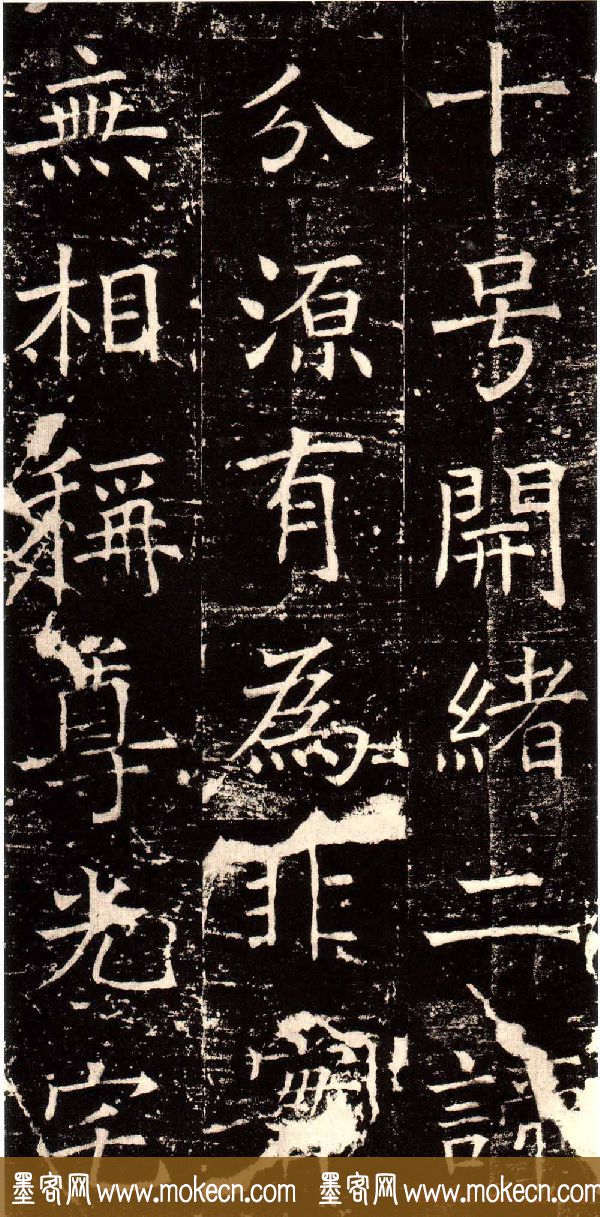 十号開緒二諦
分源有為非實
無相稱尊光宅
墨客网 www.mokecn.com 墨客网 www.mokecn.com